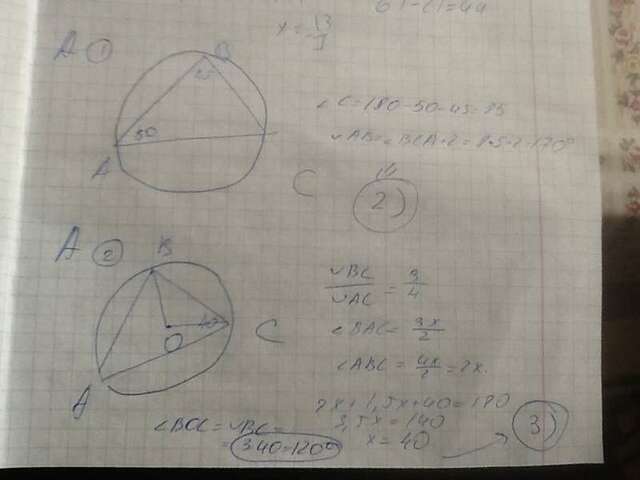 x = 13
A 1
B
50
A
C
∠C = 180 - 50 - 45 = 85
◡AB = ∠BCA·2 = 85·2 = 170°
2)
A 2
B
O
40
C
A
◡BC / ◡AC = 3 / 4
∠BAC = 3x / 2
∠ABC = 4x / 2 = 2x.
2x + 1,5x + 40 = 180
3,5x = 140
x = 40
3)
∠BOC = ◡BC =
= 3·40 = 120°